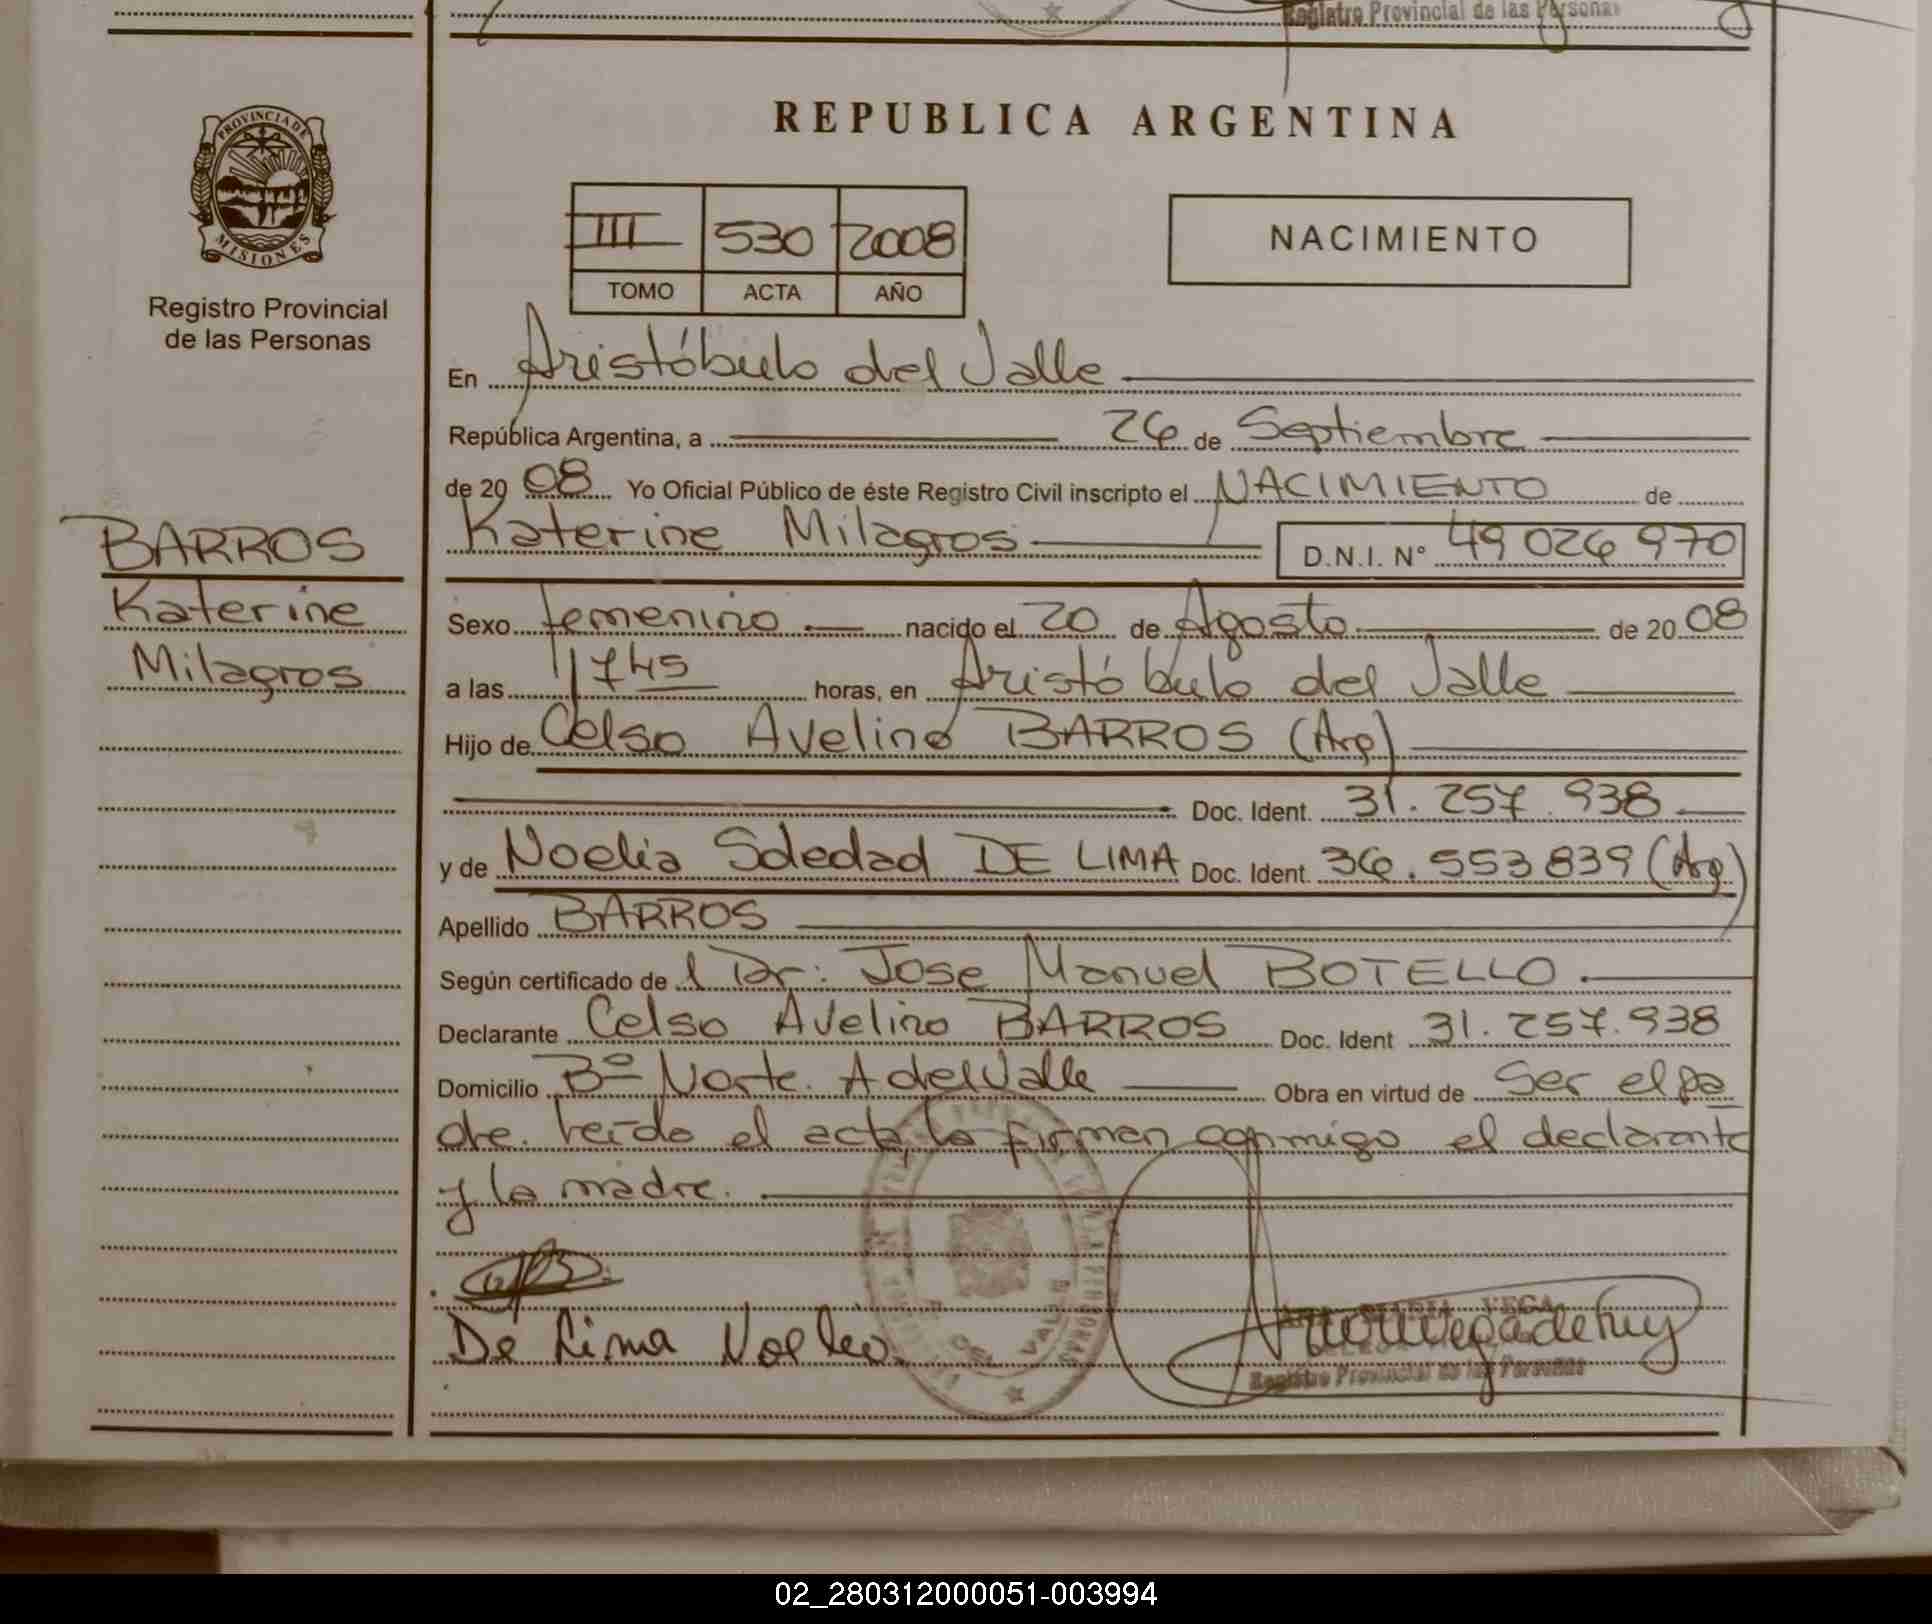 Registro Provincial de las Personas
PROVINCIA DE
MISIONES
Registro Provincial
de las Personas
REPUBLICA ARGENTINA
III 530 2008
TOMO ACTA AÑO
NACIMIENTO
En Aristóbulo del Valle
República Argentina, a 26 de Septiembre
de 2008 Yo Oficial Público de éste Registro Civil inscripto el NACIMIENTO de
Katerine Milagros D.N.I. N° 49 026 970
BARROS
Katerine
Milagros
Sexo femenino nacido el 20 de Agosto de 2008
a las 1745 horas, en Aristóbulo del Valle
Hijo de Celso Avelino BARROS (Arg)
Doc. Ident. 31.257.938
y de Noelia Soledad DE LIMA Doc. Ident. 36.553839 (Arg)
Apellido BARROS
Según certificado de l Dr: Jose Manuel BOTELLO.
Declarante Celso Avelino BARROS Doc. Ident 31.257.938
Domicilio B° Norte. A del Valle Obra en virtud de Ser el pa
dre. Leído el acta, la firman conmigo el declarante
y la madre.
De Lima Noelia
ANA MARIA VEGA
Registro Provincial de las Personas
DEL VALLE
02_280312000051-003994